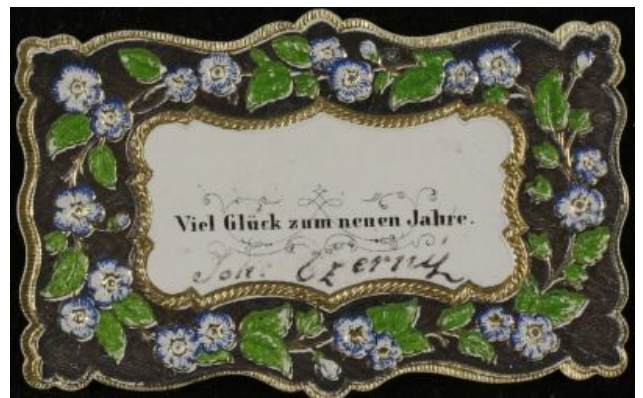 Viel Glück zum neuen Jahre.
Joh: Czerný